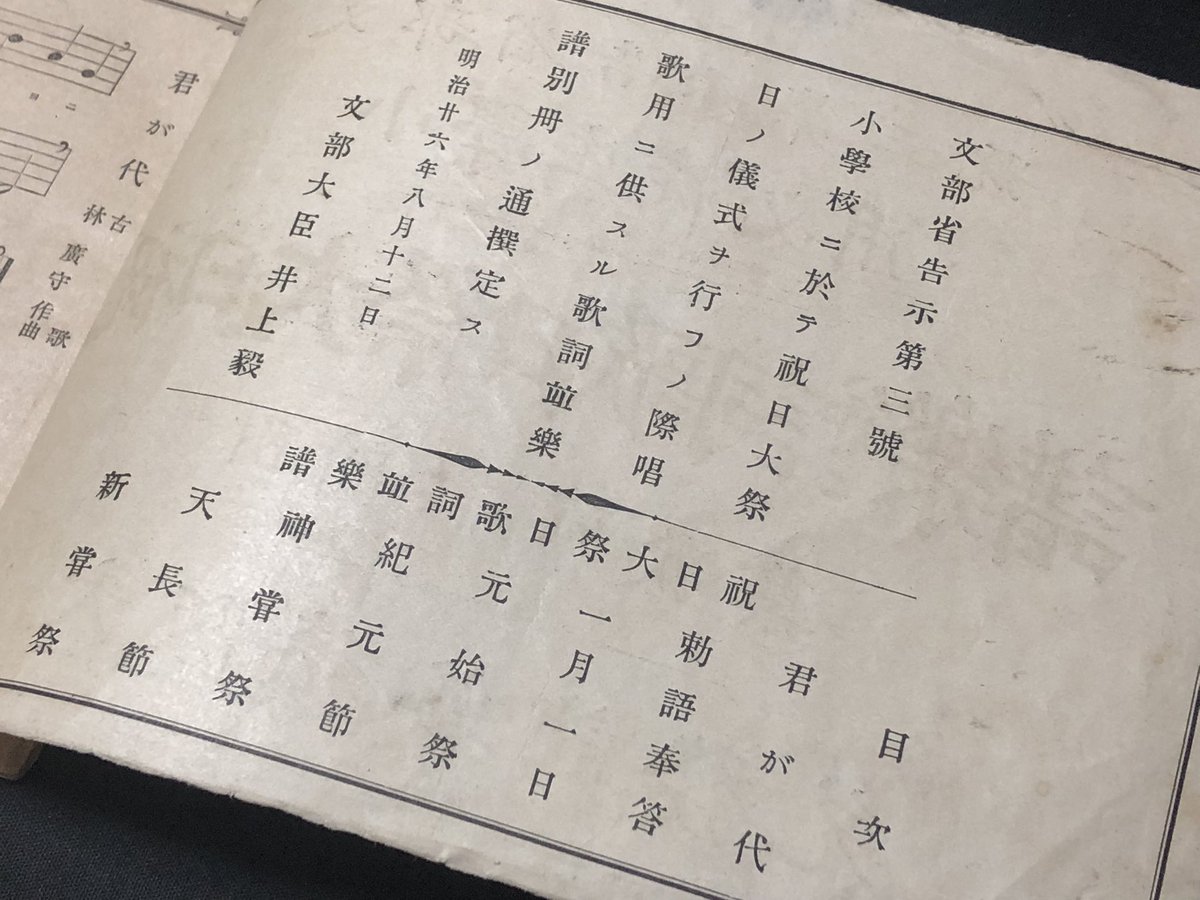 文部省告示第三號
小學校ニ於テ祝日大祭
日ノ儀式ヲ行フノ際唱
歌用ニ供スル歌詞竝樂
譜別冊ノ通撰定ス
明治廿六年八月十二日
文部大臣井上毅
祝日大祭日歌詞竝樂譜
目次
君が代
勅語奉答
一月一日
元始祭
紀元節
神嘗祭
天長節
新嘗祭
君が代
古歌
林廣守作曲
ヨニ